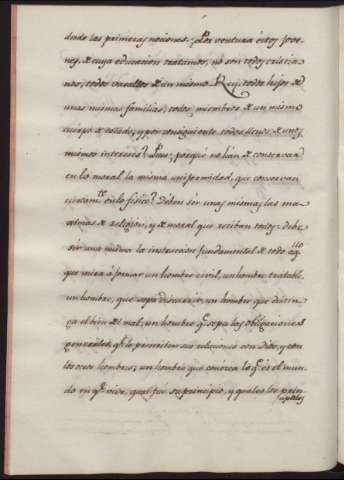 dado las primeras nociones. ¿Por ventura éstos Jove-
nes, de cuya educacion tratamos, no son todos cristia
nos, todos vasallos de un mismo Rey, todos hijos de
unas mismas familias, todos miembros de un mismo
cuerpo de estado, y por consiguiente todos llenos de unos
mismos interéses? Pues; porqué no han de conservar
en lo moral la misma uniformidad, que conservan
en lo fisico? Deben ser unas mismas las ma
ximas de religion, y de moral que reciban todos: debe
ser una misma la instruccion fundamental de todo aq.llo
que mira à formar un hombre civil, un hombre tratable,
un hombre, que sepa discurrir, un hombre que distin-
ga el bien del mal, un hombre q.e sepa las obligaciones
generales, q.e le permiten sus relaciones con Dios, y con
los otros hombres; un hombre que conozca lo q.e es el mun-
do en q.e vive, qual fue su principio, y quales los prin-
cipales